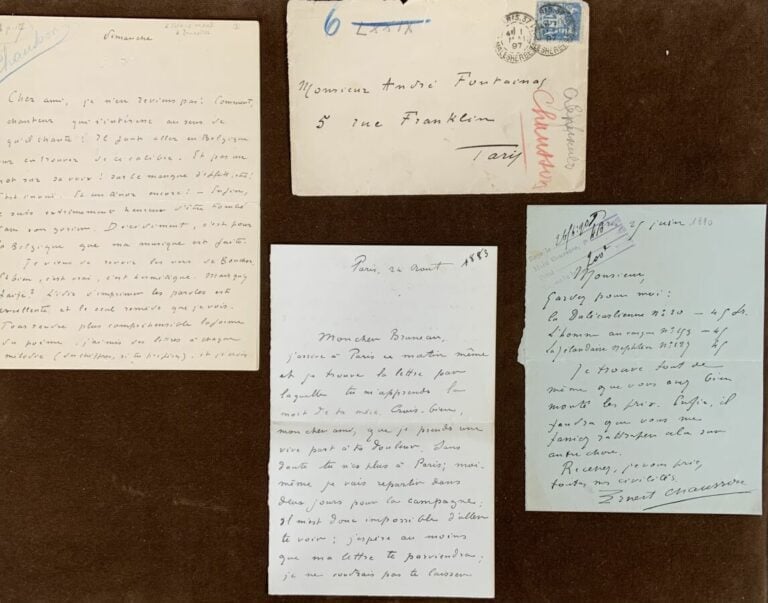 Dimanche
Chausson
Cher ami, je n'en reviens pas! Comment,
chanteur qui s'intéresse au sens de
qu'il chante! Il faut aller en Belgique
en trouver de ce calibre. Et pas un
mot sur sa voix! sur le manque d'effets
Et un ténor encore! - Enfin,
suis extrêmement heureux d'être tombé
son gosier. Décidément, c'est pour
la Belgique que ma musique est faite.
Je viens de revoir les vers de
c'est vrai, c'est hermétique.
L'idée d'imprimer les paroles est
excellente, et le seul remède que je vois.
Pour rendre plus compréhensible la forme
du poème, j'ai mis des titres à chaque
6
LXXIX
PARIS
97
MALESHERBES
Monsieur André Fontainas
5 rue Franklin
Paris
Chausson
Crépuscule
Paris, 24 Août
1883
Mon cher Bruneau,
j'arrive à Paris ce matin même
et je trouve la lettre par
laquelle tu m'apprends la
mort de ta mère. Crois bien,
mon cher ami, que je prends une
vive part à ta douleur. Sans
doute tu n'es plus à Paris; moi-
même je vais repartir dans
deux jours pour la campagne;
Il m'est donc impossible d'aller
te voir; j'espère au moins
que ma lettre te parviendra;
je ne voudrais pas te laisser
25 juin 1890
Monsieur,
Gardez pour moi:
la Dalécarlienne N° 20 - 45 fr.
L'homme au casque N° 153 - 45
La Zélandaise Zephten N° 127 45
Je trouve tout de
même que vous avez bien
monté les prix. Enfin, il
faudra que vous me
fassiez rattraper cela sur
autre chose.
Recevez, je vous prie,
toutes mes civilités.
Ernest Chausson